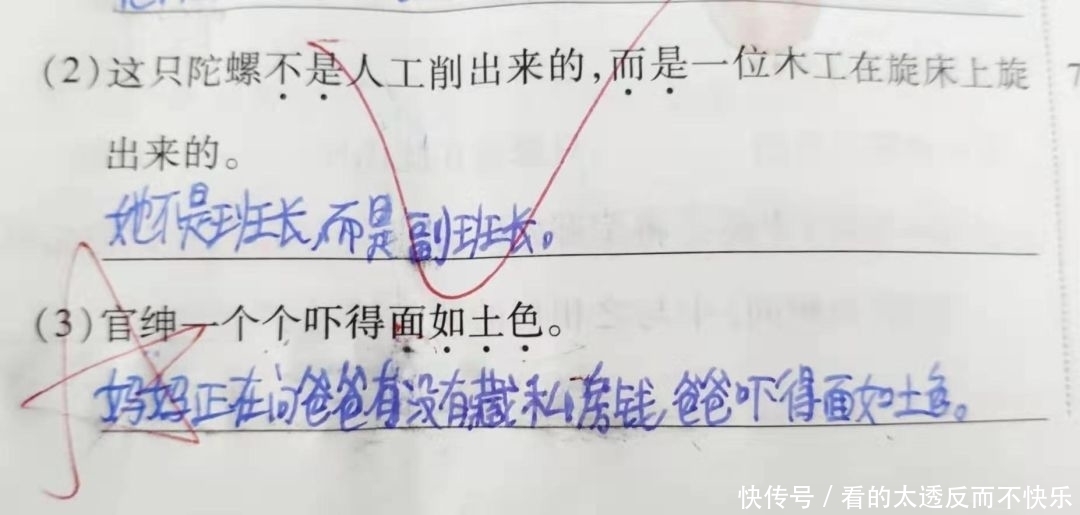 (2)这只陀螺不是人工削出来的,而是一位木工在旋床上旋
出来的。
她不是班长,而是副班长。
(3)官绅一个个吓得面如土色。
妈妈正在问爸爸有没有藏私房钱,爸爸吓得面如土色。
快传号 / 看的太透反而不快乐